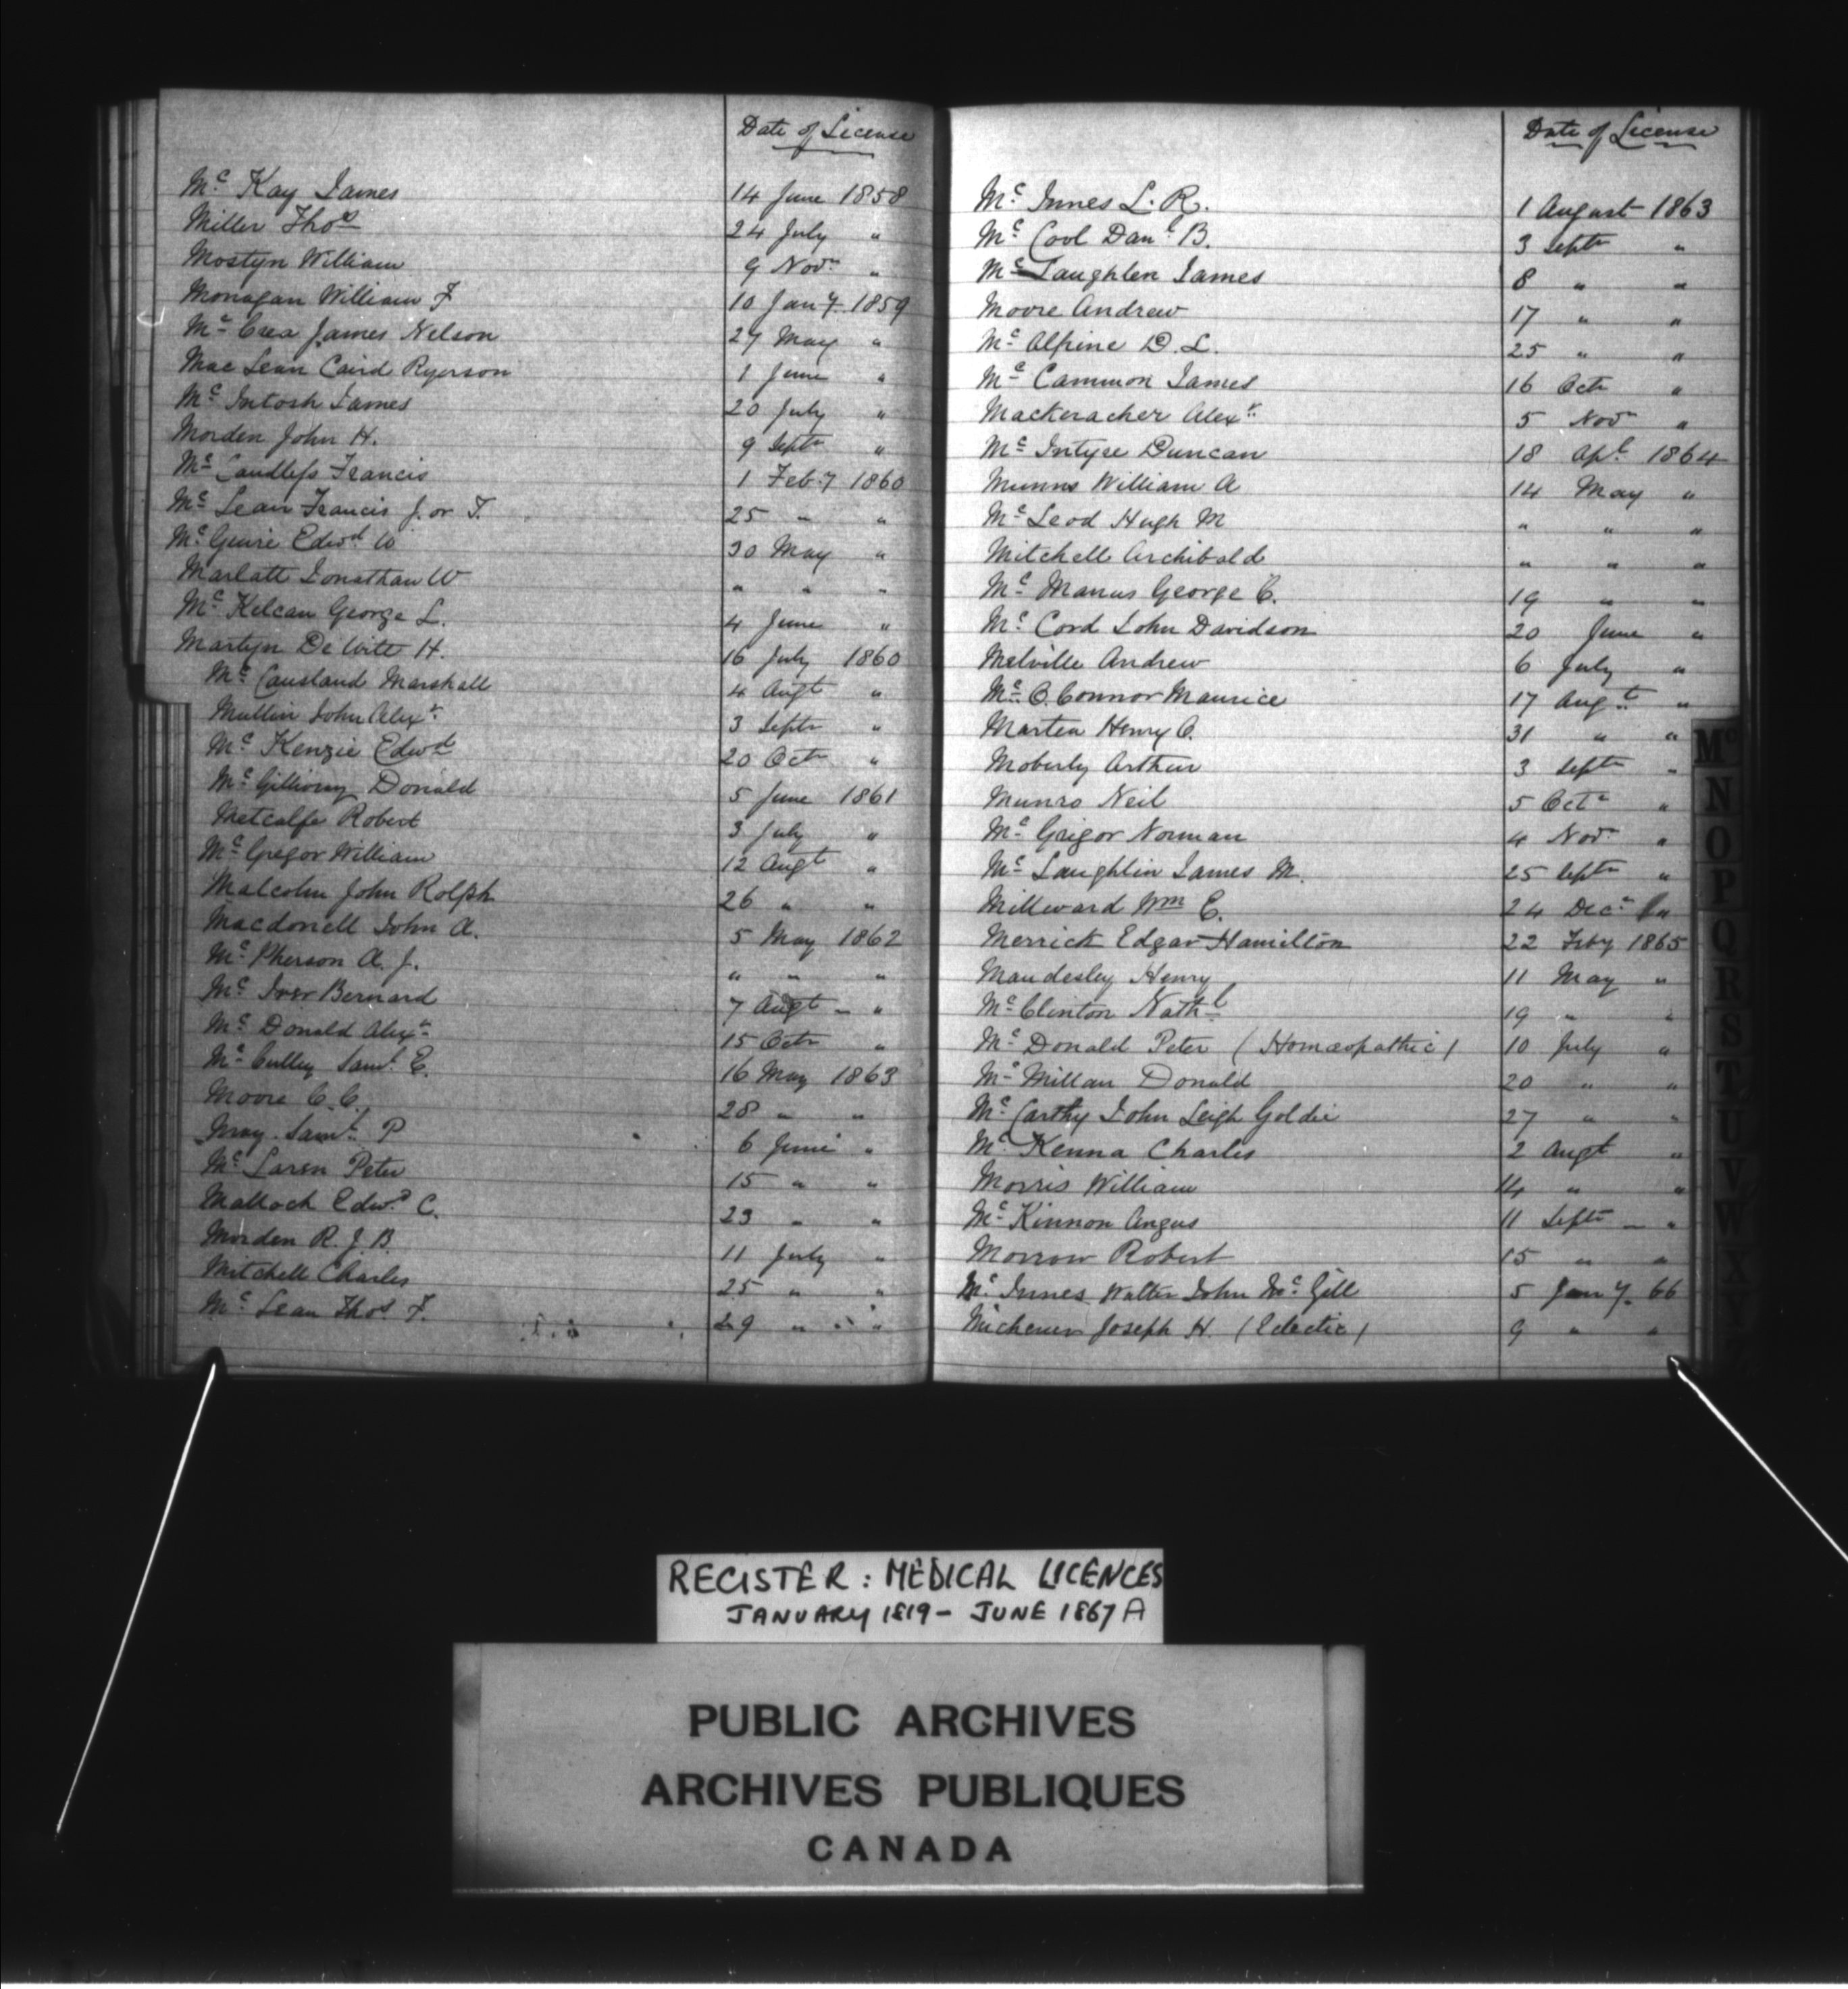 Date of License
Mc Kay James 14 June 1858
Miller Thos 24 July "
Mostyn William 9 Novr "
Monagan William F 10 Jany 1859
Mc Crea James Nelson 27 May "
Mac Lean Caird Ryerson 1 June "
Mc Intosh James 20 July "
Morden John H. 9 Septr "
Mc Candless Francis 1 Feby 1860
Mc Lean Francis J. or T. 25 " "
Mc Guire Edwd W 30 May "
Marlatt Jonathan W " " "
Mc Kelcan George L. 4 June "
Martyn De Witt H. 16 July 1860
Mc Causland Marshall 4 Augt "
Mullin John Alexr 3 Septr "
Mc Kenzie Edwd 20 Octr "
Mc Donald 5 June 1861
Metcalfe Robert 3 July "
Mc Gregor William 12 Augt "
Malcolm John Rolph 26 " "
Macdonell John A. 5 May 1862
Mc Pherson A. J. " " "
Mc Iver Bernard 7 Augt - "
Mc Donald Alexr 15 Octr "
Mc Culley Saml E. 16 May 1863
Moore C. C. 28 " "
May Saml P 6 June "
Mc Laren Peter 15 " "
Malloch Edwd C. 23 " "
Morden R. J. B. 11 July "
Mitchell Charles 25 " "
Mc Lean Thos F. 29 " "
Date of License
Mc Innes L. R. 1 August 1863
Mc Cool Danl B. 3 Septr "
Mc Laughlen James 8 " "
Moore Andrew 17 " "
Mc Alpine D. L. 25 " "
Mc Cammon James 16 Octr "
Mackeracher Alexr 5 Novr "
Mc Intyre Duncan 18 Apl 1864
Munns William A 14 May "
Mc Leod Hugh M " " "
Mitchell Archibald " " "
Mc Manus George C. 19 " "
Mc Cord John Davidson 20 June "
Melville Andrew 6 July "
Mc O.Connor Maurice 17 Augt "
Marten Henry O. 31 " "
Moberly Arthur 3 Septr "
Munro Neil 5 Octr "
Mc Grigor Norman 4 Novr "
Mc Laughlin James M. 25 Septr "
Millward Wm E. 24 Decr "
Merrick Edgar Hamilton 22 Feby 1865
Maudesley Henry 11 May "
Mc Clinton Nathl 19 " "
Mc Donald Peter (Homœopathic) 10 July "
Mc Millan Donald 20 " "
Mc Carthy John Leigh Goldie 27 " "
Mc Kenna Charles 2 Augt "
Morris William 14 " "
Mc Kinnon Angus 11 Septr - "
Morrow Robert 15 " "
Mc Innes Walter John Mc Gill 5 Jany 66
Michener Joseph H. (Eclectic) 9 " "
Mc
N
O
P
Q
R
S
T
U
V
W
X
Y
Z
REGISTER: MEDICAL LICENCES
JANUARY 1819 - JUNE 1867 A
PUBLIC ARCHIVES
ARCHIVES PUBLIQUES
CANADA